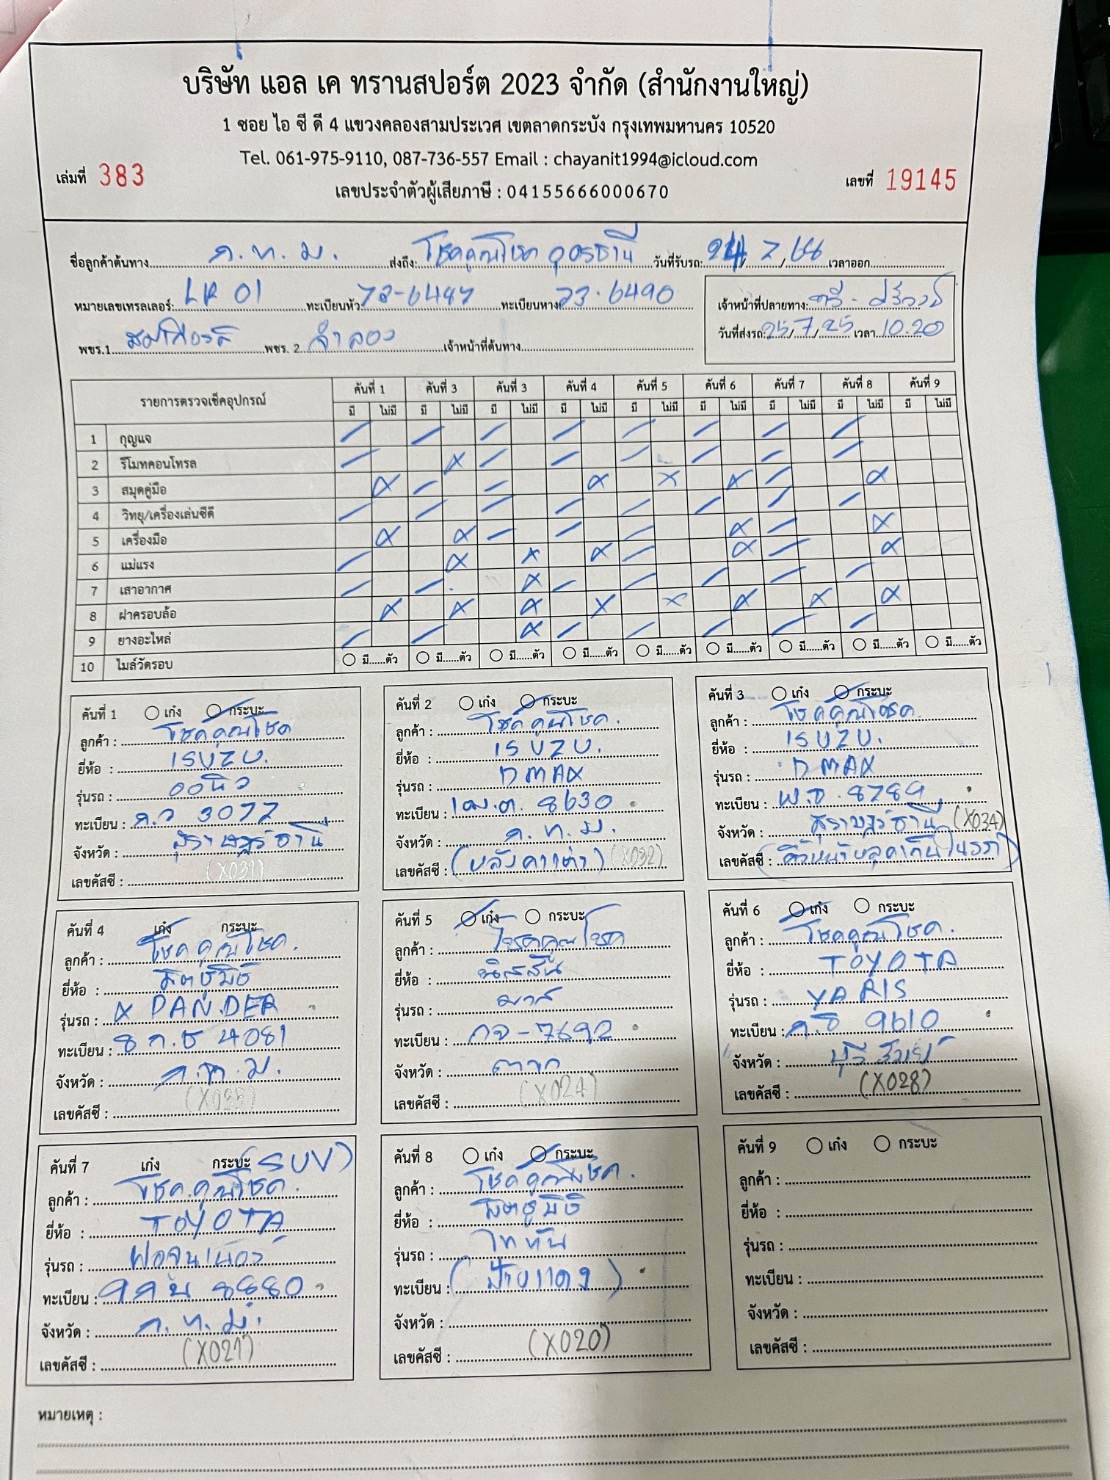 บริษัท แอล เค ทรานสปอร์ต 2023 จำกัด (สำนักงานใหญ่)
1 ซอย ไอ ซี ดี 4 แขวงคลองสามประเวศ เขตลาดกระบัง กรุงเทพมหานคร 10520
Tel. 061-975-9110, 087-736-557 Email : chayanit1994@icloud.com
เล่มที่ 383 เลขประจำตัวผู้เสียภาษี : 04155666000670 เลขที่ 19145
ชื่อลูกค้าต้นทาง ก.ท.ม. ส่งถึง: โชคคูณโชค อุดรธานี วันที่รับรถ: 24/7/68 เวลาออก
หมายเลขเทรลเลอร์: LK 01 ทะเบียนหัว 73-6487 ทะเบียนหาง 73-6490 เจ้าหน้าที่ปลายทาง:
พขร.1 สมเกียรติ พขร. 2 จำลอง เจ้าหน้าที่ต้นทาง วันที่ส่งรถ: 25/7/25 เวลา 10.20
รายการตรวจเช็คอุปกรณ์ คันที่ 1 คันที่ 3 คันที่ 3 คันที่ 4 คันที่ 5 คันที่ 6 คันที่ 7 คันที่ 8 คันที่ 9
มี ไม่มี มี ไม่มี มี ไม่มี มี ไม่มี มี ไม่มี มี ไม่มี มี ไม่มี มี ไม่มี มี ไม่มี
1 กุญแจ
2 รีโมทคอนโทรล
3 สมุดคู่มือ
4 วิทยุ/เครื่องเล่นซีดี
5 เครื่องมือ
6 แม่แรง
7 เสาอากาศ
8 ฝาครอบล้อ
9 ยางอะไหล่
10 ไมล์วัดรอบ มี......ตัว มี......ตัว มี......ตัว มี......ตัว มี......ตัว มี......ตัว มี......ตัว มี......ตัว มี......ตัว
คันที่ 1 เก๋ง กระบะ
ลูกค้า : โชคคูณโชค
ยี่ห้อ : ISUZU.
รุ่นรถ : ออนิว
ทะเบียน : 3077
จังหวัด : สุราษฎร์ธานี
เลขคัสซี : (X031)
คันที่ 2 เก๋ง กระบะ
ลูกค้า : โชคคูณโชค.
ยี่ห้อ : ISUZU.
รุ่นรถ : DMAX
ทะเบียน : 8630
จังหวัด : ก.ท.ม.
เลขคัสซี : (หลังคาเต่า) (X032)
คันที่ 3 เก๋ง กระบะ
ลูกค้า : โชคคูณโชค
ยี่ห้อ : ISUZU.
รุ่นรถ : DMAX
ทะเบียน : 8789
จังหวัด : สุราษฎร์ธานี (X034)
เลขคัสซี :
คันที่ 4 เก๋ง กระบะ
ลูกค้า : โชคคูณโชค.
ยี่ห้อ : มิตซูมิชิ
รุ่นรถ : XPANDER
ทะเบียน : 8กช 4081
จังหวัด : ก.ท.ม.
เลขคัสซี :
คันที่ 5 เก๋ง กระบะ
ลูกค้า : โชคคูณโชค
ยี่ห้อ : นิสสัน
รุ่นรถ : มาส
ทะเบียน : กจ-7692
จังหวัด : ตาก
เลขคัสซี : (X024)
คันที่ 6 เก๋ง กระบะ
ลูกค้า : โชคคูณโชค.
ยี่ห้อ : TOYOTA
รุ่นรถ : YARIS
ทะเบียน : 9610
จังหวัด : บุรีรัมย์
เลขคัสซี : (X028)
คันที่ 7 เก๋ง กระบะ (SUV)
ลูกค้า : โชคคูณโชค.
ยี่ห้อ : TOYOTA
รุ่นรถ : ฟอจูนเนอร์
ทะเบียน : 8880
จังหวัด : ก.ท.ม.
เลขคัสซี : (X027)
คันที่ 8 เก๋ง กระบะ
ลูกค้า : โชคคูณโชค.
ยี่ห้อ : มิตซูมิชิ
รุ่นรถ : ไททัน
ทะเบียน : (ป้ายแดง)
จังหวัด :
เลขคัสซี : (X020)
คันที่ 9 เก๋ง กระบะ
ลูกค้า :
ยี่ห้อ :
รุ่นรถ :
ทะเบียน :
จังหวัด :
เลขคัสซี :
หมายเหตุ :